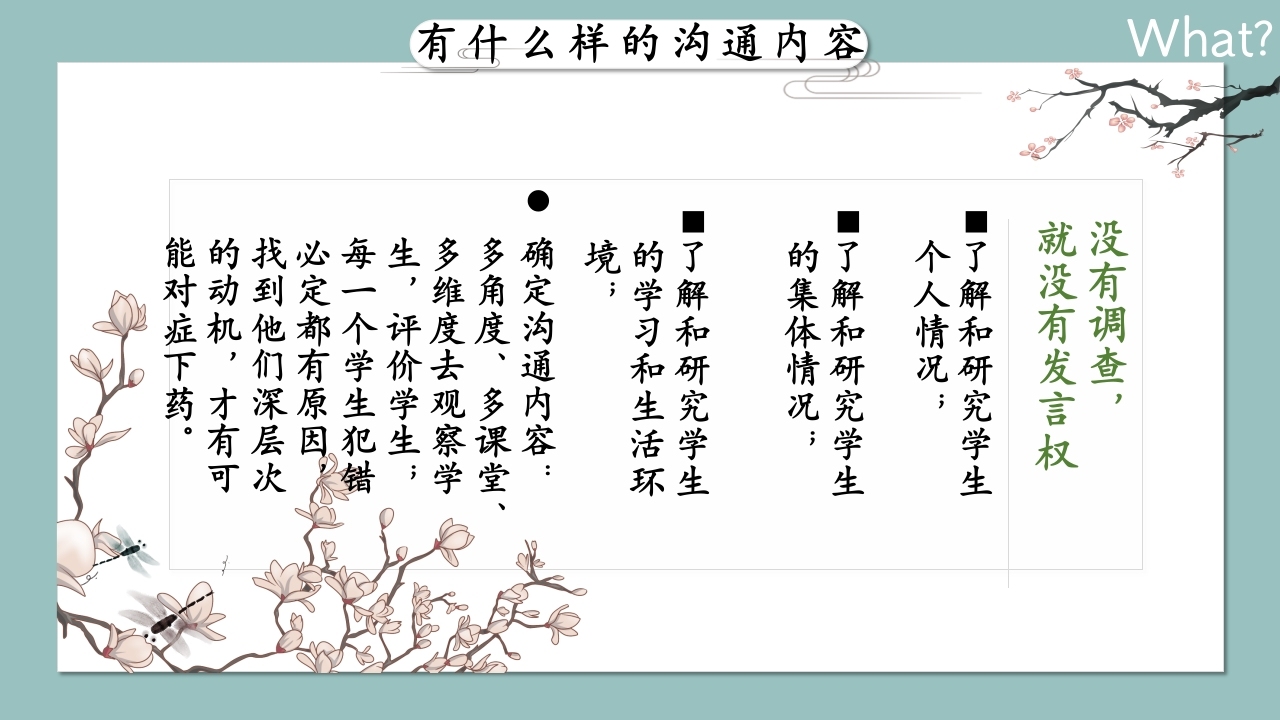 有什么样的沟通内容
What?
没有调查，
就没有发言权
■了解和研究学生
个人情况；
■了解和研究学生
的集体情况；
■了解和研究学生
的学习和生活环
境；
●确定沟通内容：
多角度、多课堂、
多维度去观察学
生，评价学生；
每一个学生犯错
必定都有原因
找到他们深层次
的动机，才有可
能对症下药。